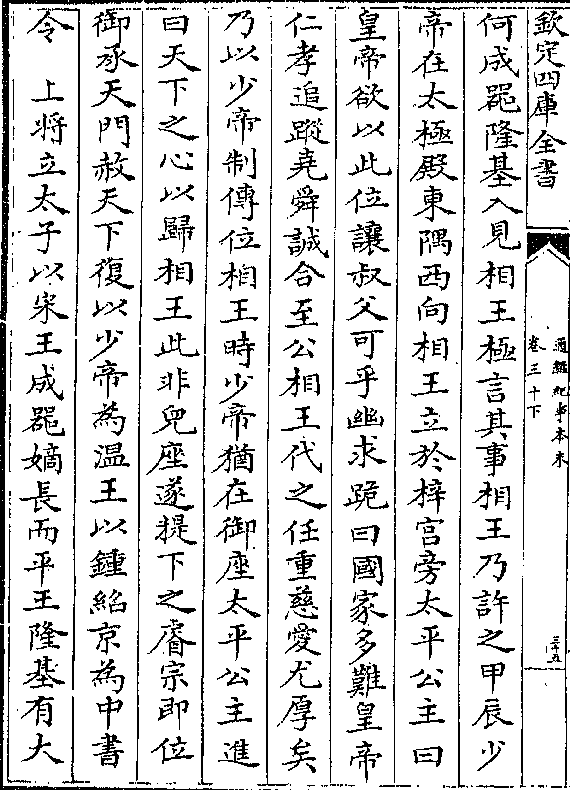 欽定四庫全書
通鑑紀事本末
卷三十下
三五
何成器隆基入見相王極言其事相王乃許之甲辰少
帝在太極殿東隅西向相王立於梓宫旁太平公主曰
皇帝欲以此位讓叔父可乎幽求跪曰國家多難皇帝
仁孝追蹤堯舜誠合至公相王代之任重慈愛尤厚矣
乃以少帝制傳位相王時少帝猶在御座太平公主進
曰天下之心以歸相王此非兒座遂提下之睿宗即位
御承天門赦天下復以少帝為温王以鍾紹京為中書
令　上將立太子以宋王成器嫡長而平王隆基有大